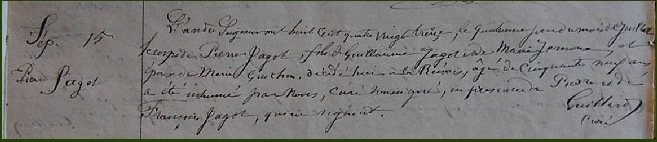 Sep. 15
Pierre Pagot
L'an du Seigneur mil huit cent quatre vingt treize, le quinzième jour du mois de Juillet
le corps de Pierre Pagot, fils de Guillaume Pagot et de Marie et
époux de Marie Guichon, décédé hier à la Rivière, âgé de cinquante neuf ans
a été inhumé par Nous, Curé soussigné, en présence de Pierre et de
François Pagot, qui ne signent.
Guillard
Curé